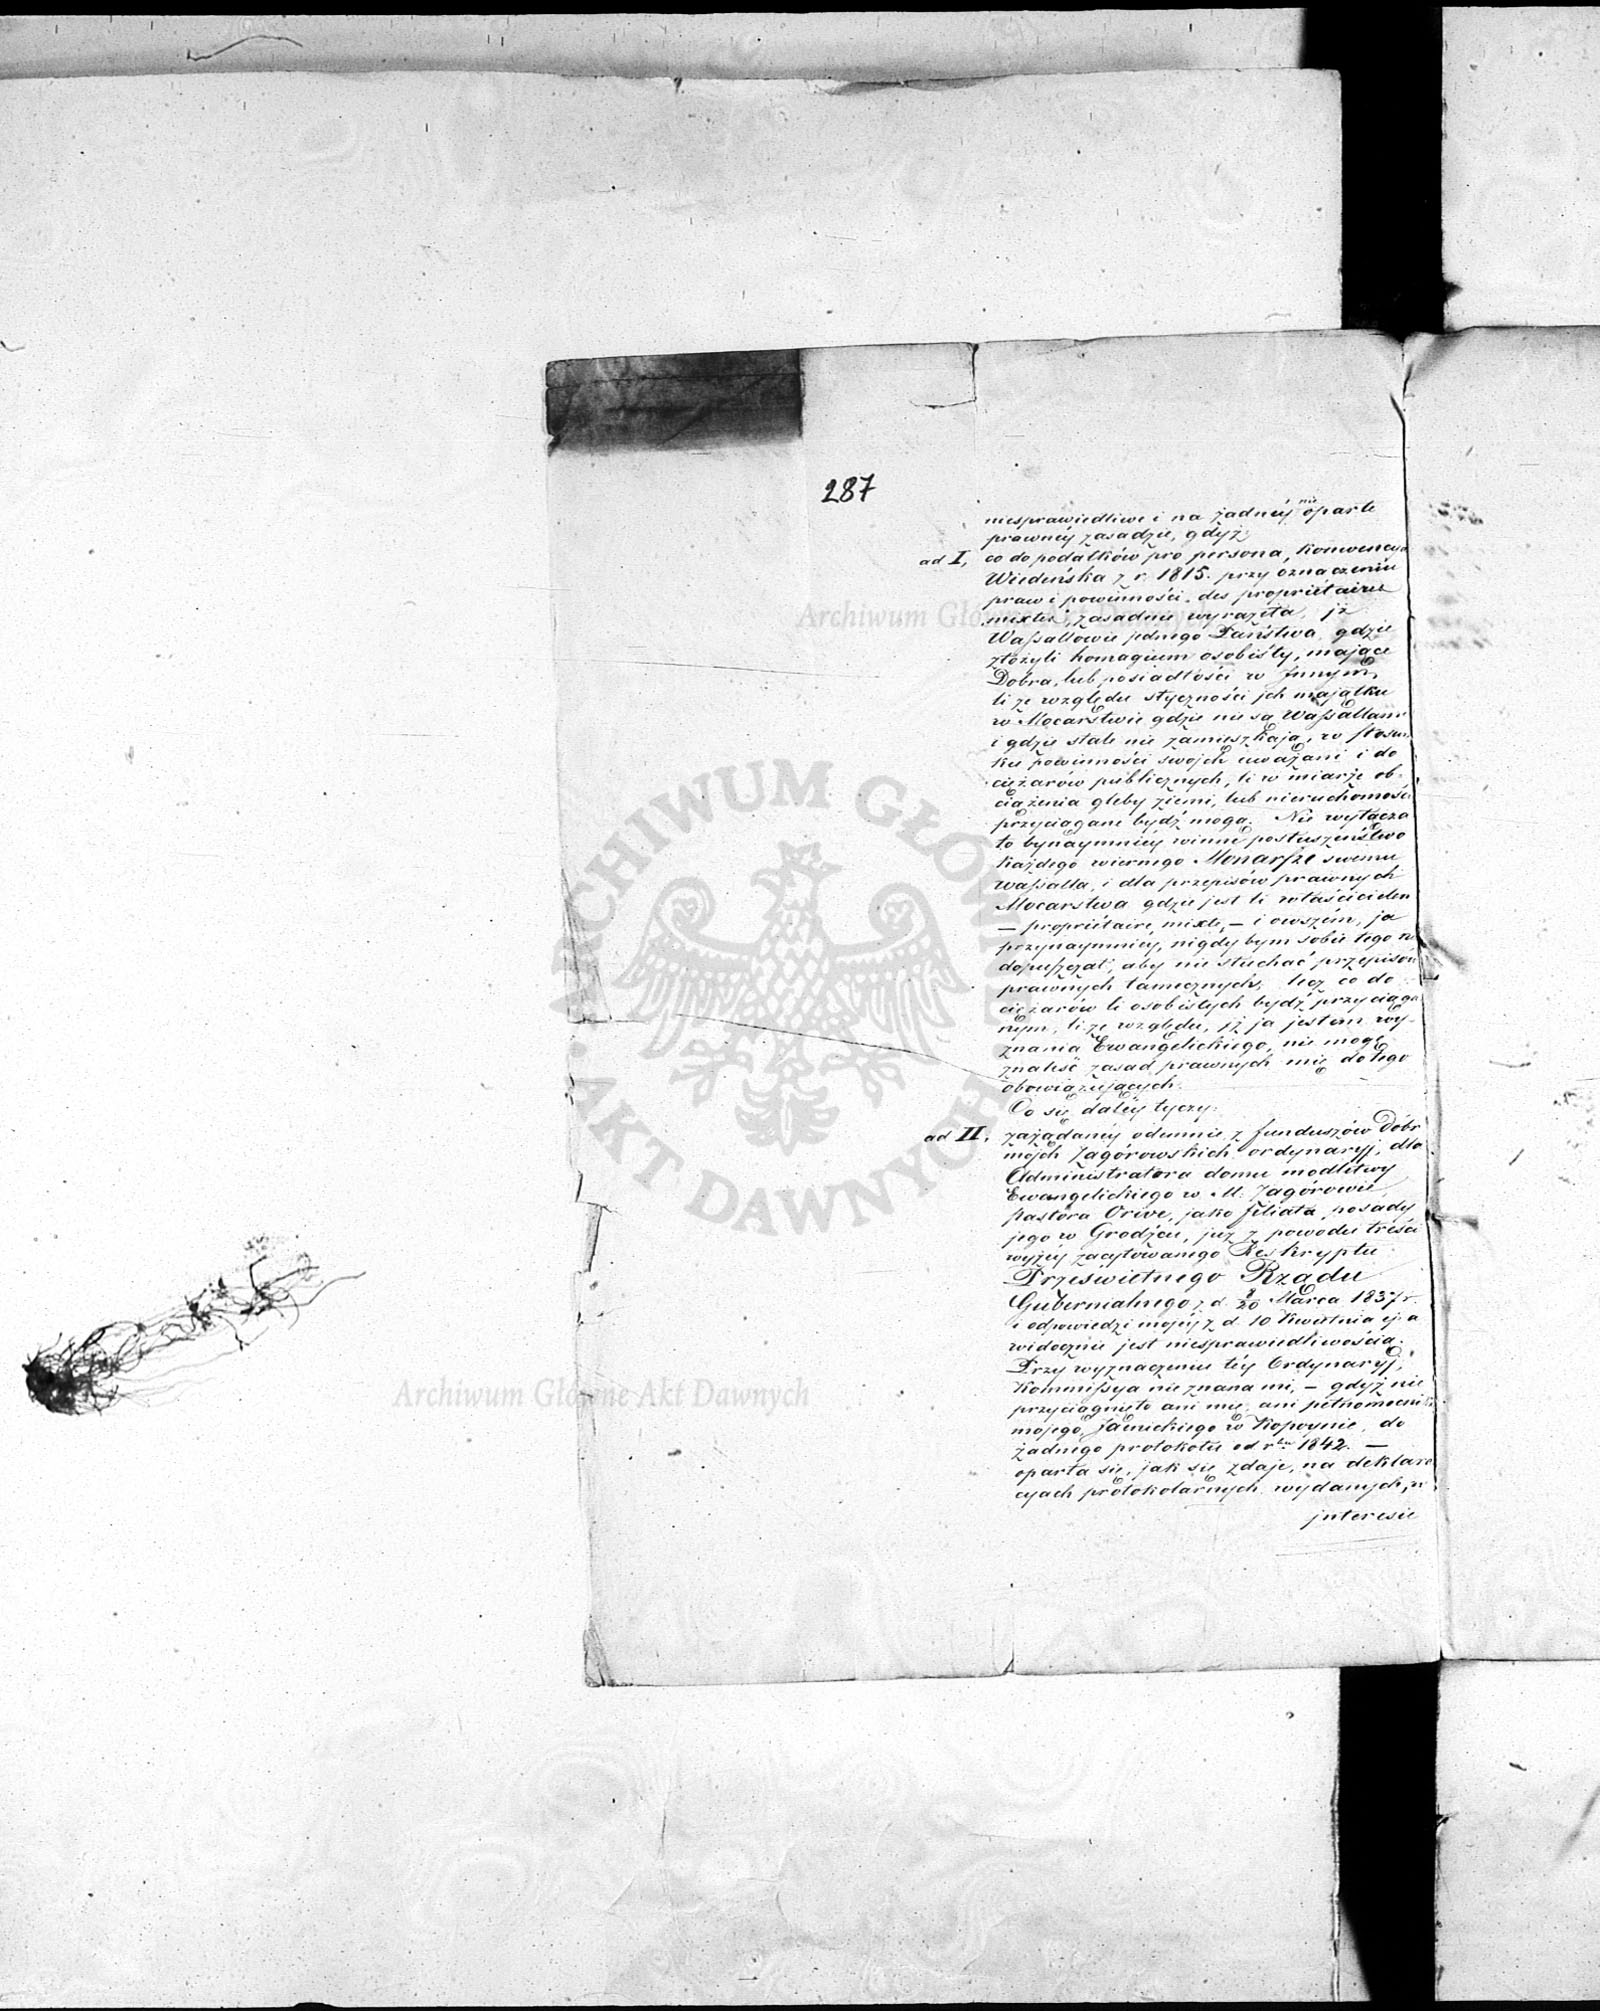 287
niesprawiedliwe i na żadnéj nie oparte
prawnéj zasadzie, gdyż:
ad I, co do podatków pro persona, Konwencya
Wiedeńska z r. 1815. przy oznaczeniu
praw i powinności des propriétaires
mixtes, zasadnie wyrazeła, jż
Waſsallowie jednego Państwa, gdzie
złożyli homagium osobisty, mające
Dobra, lub posiadłości w Jnnym,
li ze względu styczności jch majątku
w Mocarstwie gdzie nie są Waſsallami
i gdzie stale nie zamieszkają, w stosun-
ku powinności swojch uważani i do
ciężarów publicznych, li w miarze ob-
ciążenia gleby ziemi, lub nieruchomości
przyciągane bydź mogą. Nie wyłącza
to bynaymniéj winne posłuszeństwo
każdego wiernego Monarsze swemu
waſsalla, i dla przepisów prawnych
Mocarstwa gdzie jest li właścicielem
— propriétaire mixte, — i owszém, ja
przynaymniéj, nigdy bym sobie tego nie
dopuſzczał, aby nie słuchać przepisów
prawnych tamecznych, lecz co do
ciężarów li osobistych bydź przyciąga-
nym, li ze względu, jż ja jestem wy-
znania Ewangelickiego, nie mogę
znaleść zasad prawnych mię do tego
obowiązujących.
Co się daléj tyczy:
ad II, zażądanéj odemnie z funduszów Dóbr
mojch Zagórowskich ordynaryj, dla
Administratora domu modlitwy
Ewangelickiego w M. Zagórowie
Pastora Orive, jako filiata posady
jego w Grodźcu, już z powodu treści
wyżéj zacytowanego Reskryptu
Prześwietnego Rządu
Gubernialnego z d. 8/20 Marca 1837 r.
i odpowiedzi mojéj z d. 10 Kwietnia ej. a
widocznie jest niesprawiedliwością.
Przy wyznaczeniu téj Ordynaryj,
Kommiſsya nie znana mi, — gdyż nie
przyciągnięto ani mię, ani pełnomocnika
mojego, Jasnickiego w Kopoynie, do
żadnego protokołu od rku 1842. —
oparła się, jak się zdaje, na deklara-
cyach protokolarnych wydanych, w
interesie
Archiwum Główne Akt Dawnych
ARCHIWUM GŁÓWNE AKT DAWNYCH
Archiwum Główne Akt Dawnych